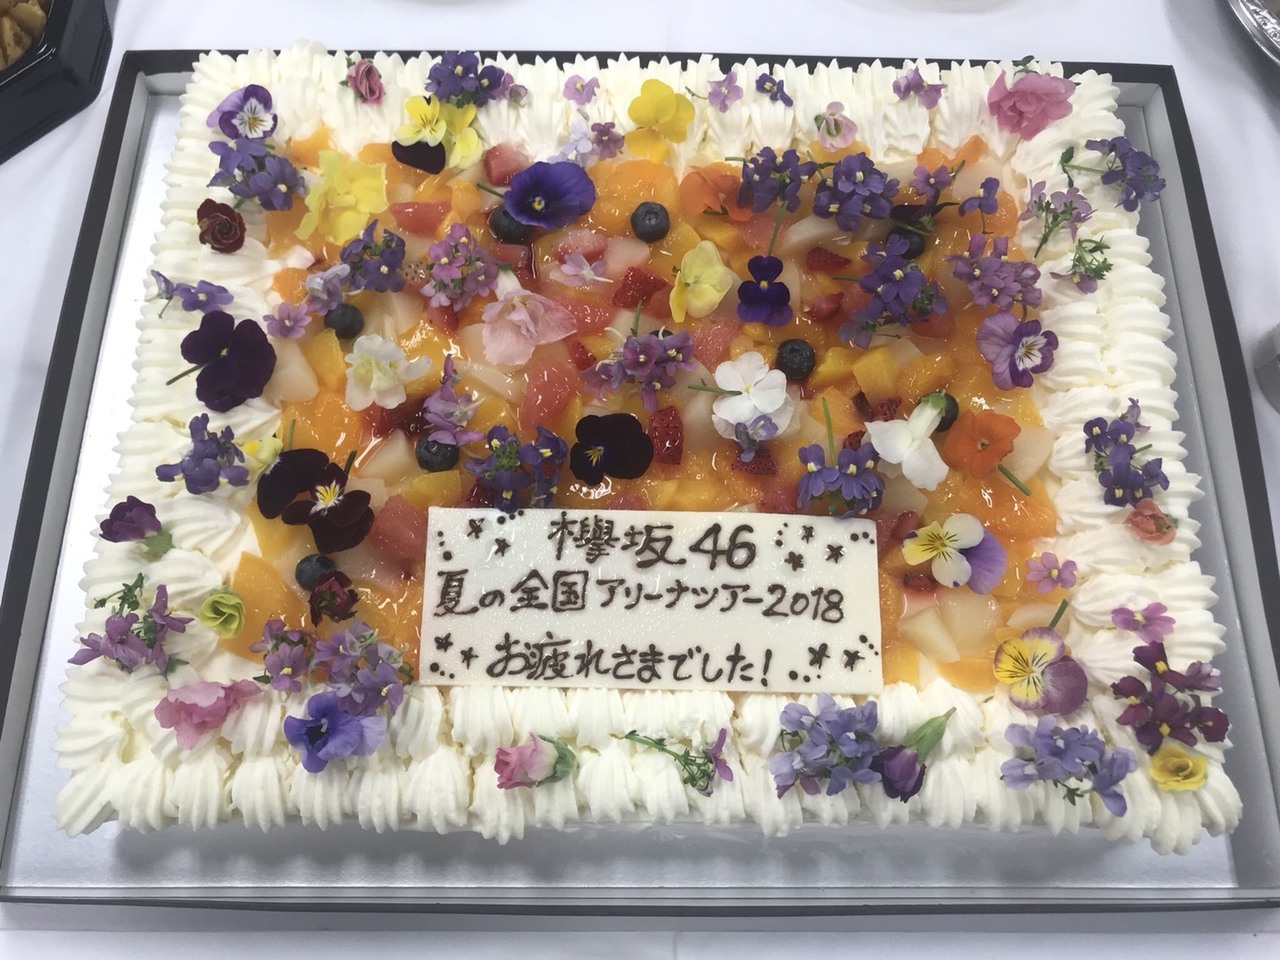 欅坂46
夏の全国アリーナツアー2018
お疲れさまでした!